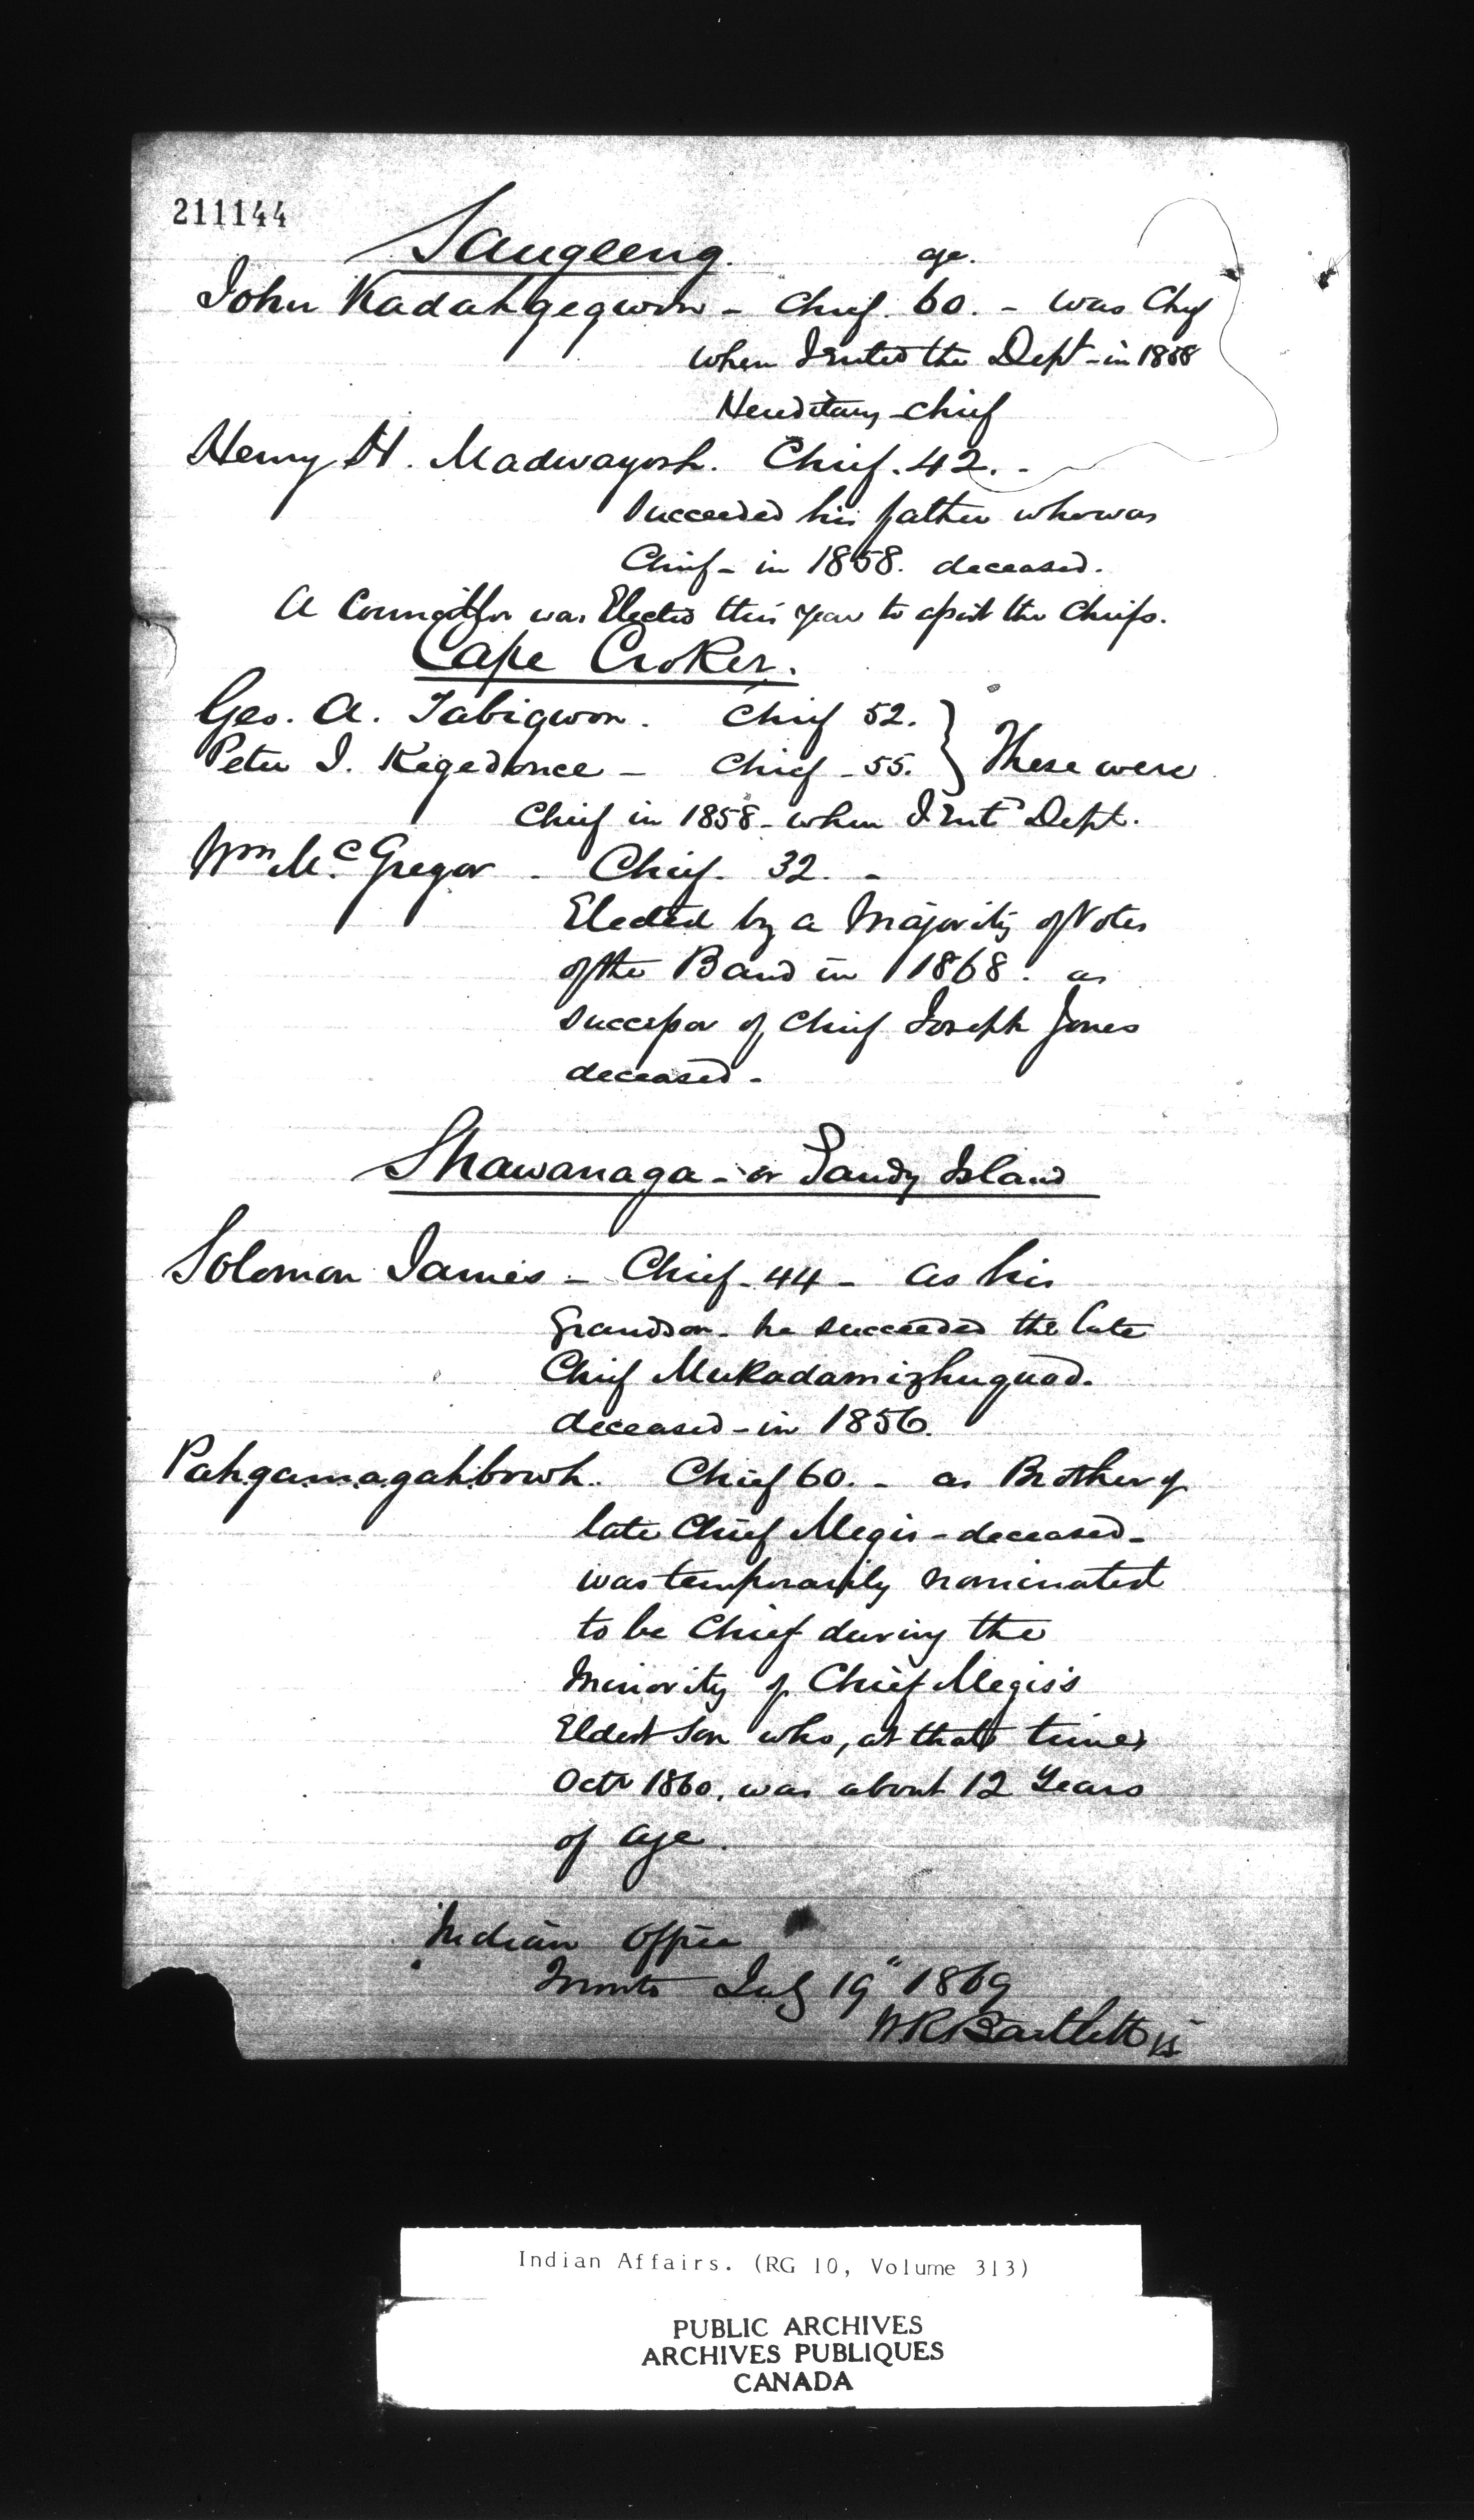 211144
Saugeeng. age.
John Kadahgegwon - Chief. 60. - was Chief
when I entd the Dept - in 1858
Hereditary - chief
Henry H. Madwayosh. Chief. 42. -
succeeded his father who was
Chief - in 1858. deceased.
A Councillor was Elected this year to assist the Chiefs.
Cape Croker.
Geo. A. Tabigwon. Chief 52.
Peter J. Kegedonce - Chief - 55. } These were
Chief in 1858 - when I entd Dept.
Wm McGregor - Chief. 32. -
Elected by a Majority of Votes
of the Band in 1868. as
successor of Chief Joseph Jones
deceased -
Shawanaga - or Sandy Island
Solomon James - Chief - 44 - as his
Grandson - he succeeded the late
Chief Mukadamizhuquod.
deceased - in 1856.
Pahgamagahbowh. Chief 60. - as Brother of
late Chief Megis - deceased -
was temporarily nominated
to be Chief during the
Minority of Chief Megis's
Eldest son who, at that time,
Octr 1860, was about 12 Years
of age.
Indian Office
Toronto July 19" 1869
W R Bartlett
Indian Affairs. (RG 10, Volume 313)
PUBLIC ARCHIVES
ARCHIVES PUBLIQUES
CANADA